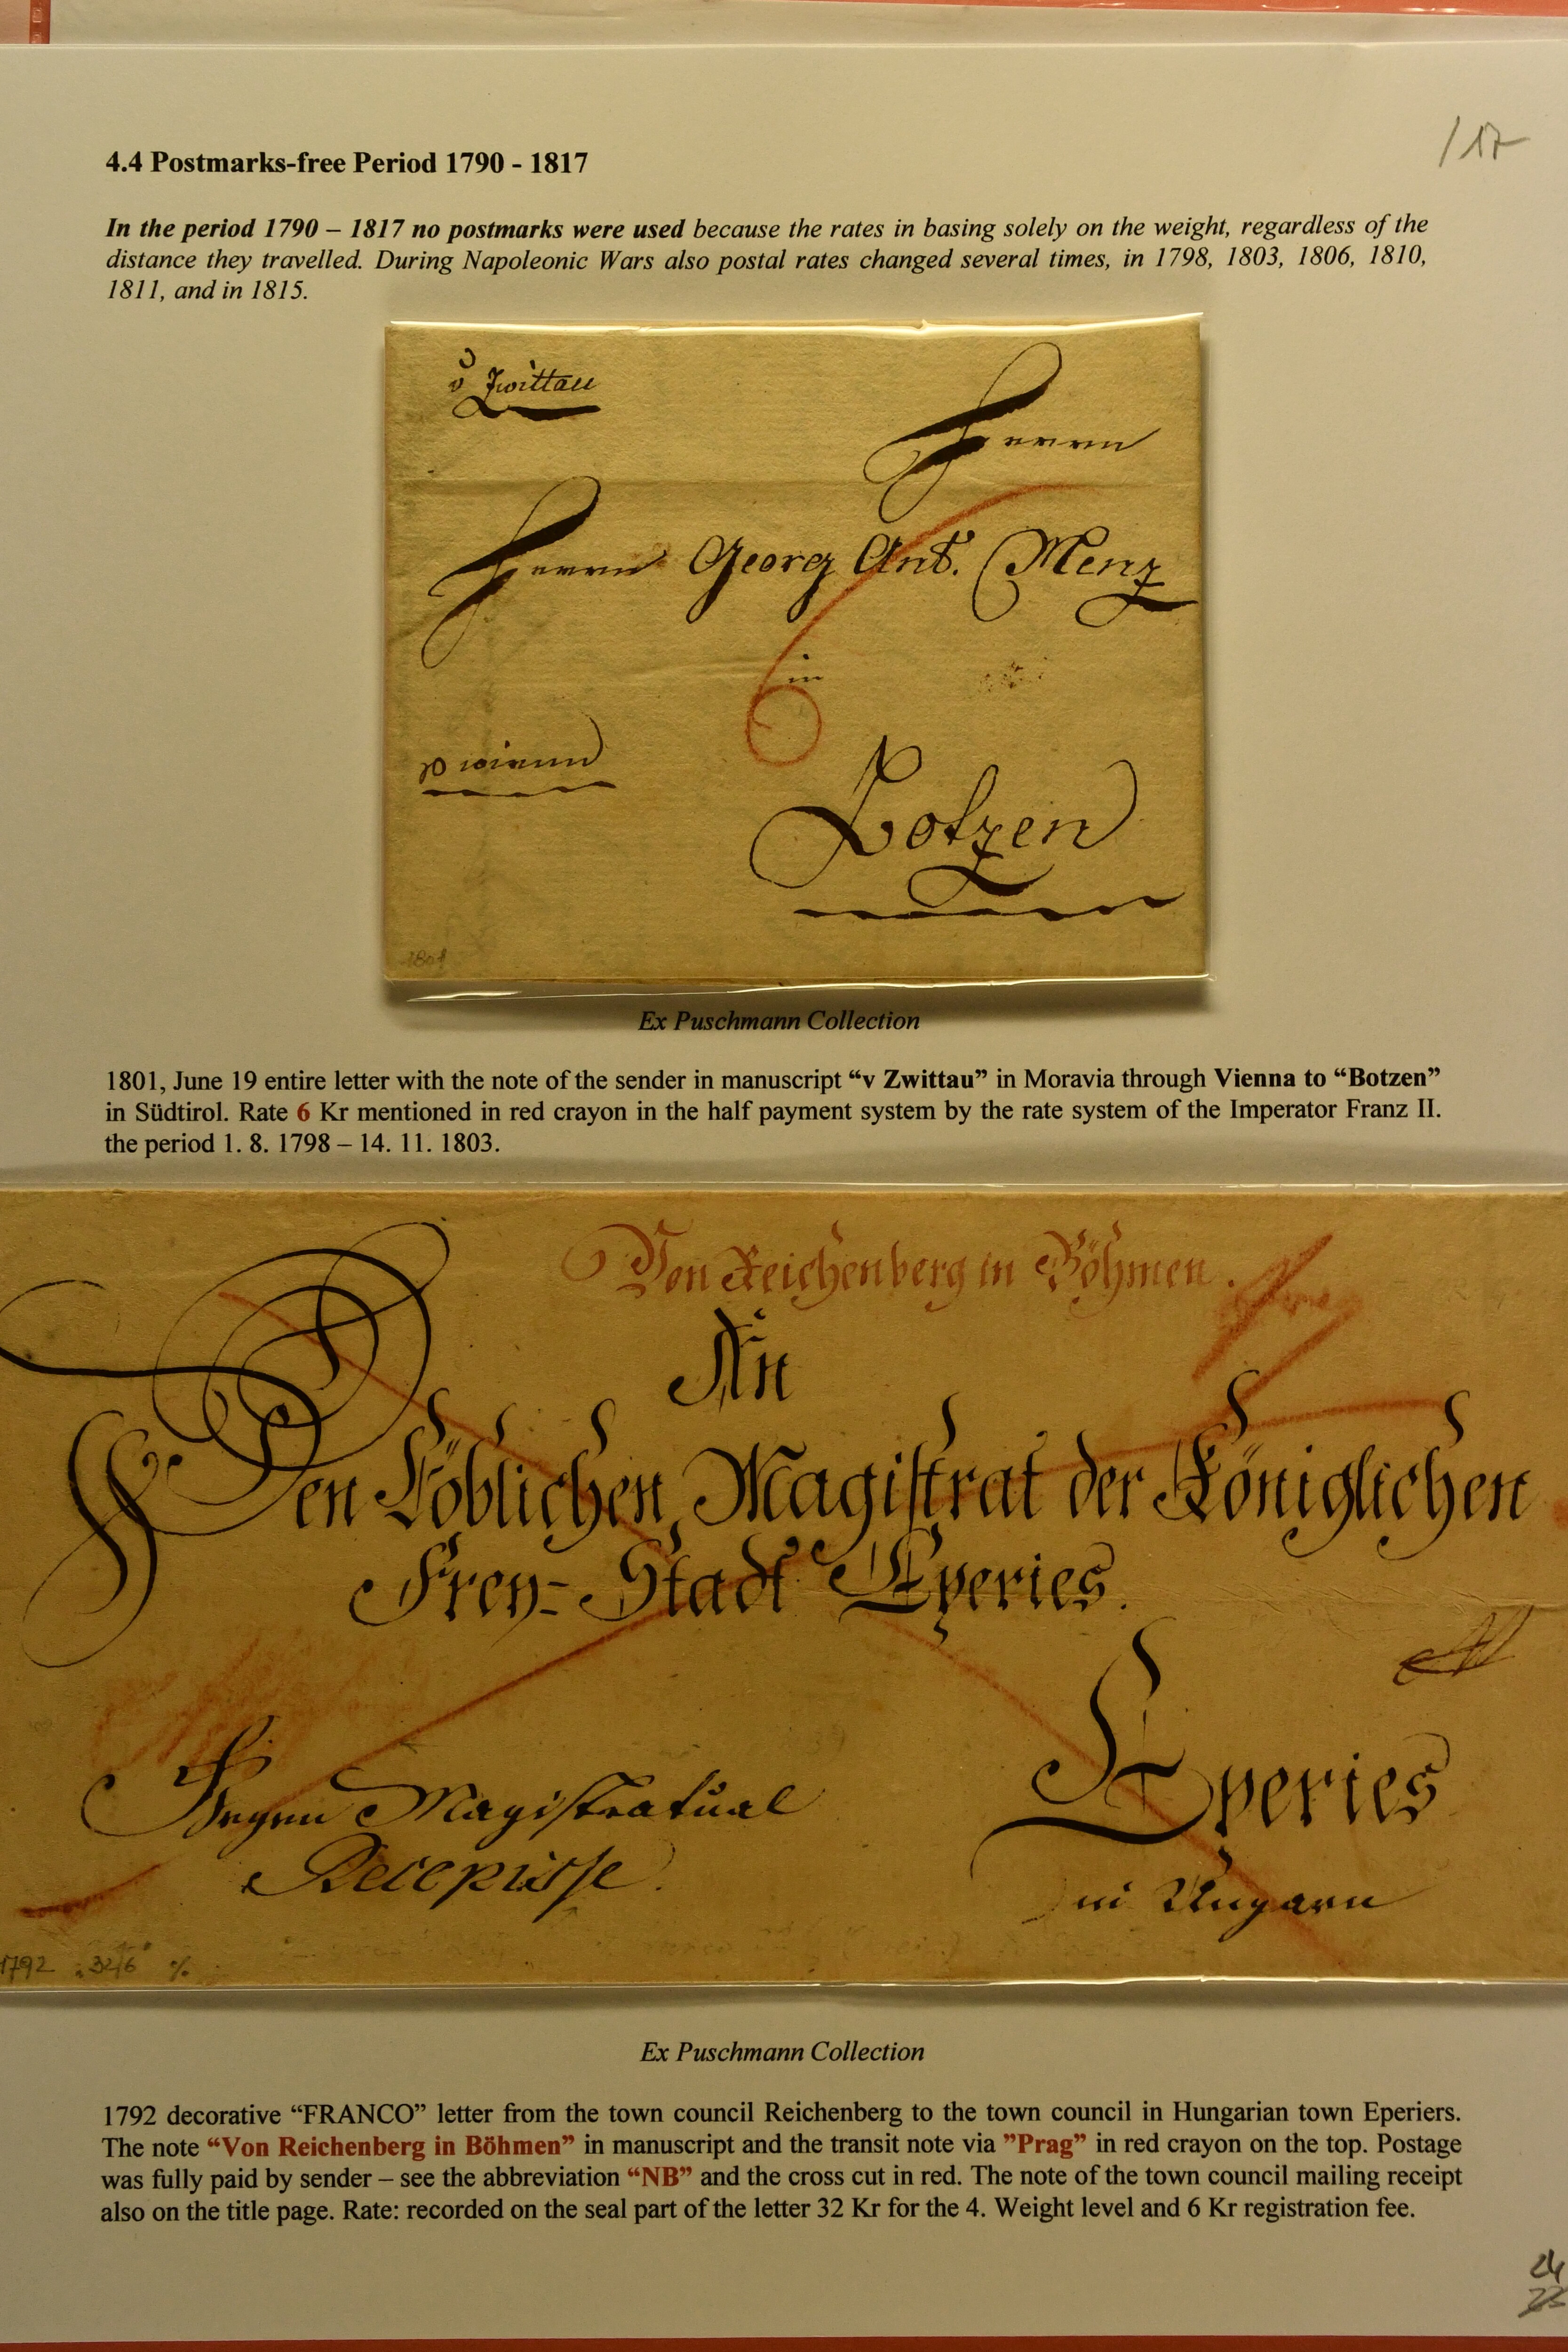 /17
4.4 Postmarks-free Period 1790 - 1817
In the period 1790 – 1817 no postmarks were used because the rates in basing solely on the weight, regardless of the
distance they travelled. During Napoleonic Wars also postal rates changed several times, in 1798, 1803, 1806, 1810,
1811, and in 1815.
v Zwittau
Herrn
Herrn Georg Ant. Menz
in
6
Botzen
1801
Ex Puschmann Collection
1801, June 19 entire letter with the note of the sender in manuscript “v Zwittau” in Moravia through Vienna to “Botzen”
in Südtirol. Rate 6 Kr mentioned in red crayon in the half payment system by the rate system of the Imperator Franz II.
the period 1. 8. 1798 – 14. 11. 1803.
Von Reichenberg in Böhmen.
An
Den Löblichen Magistrat der Königlichen
Frey-Stadt Eperies.
Gegen Magistratual
Recepisse.
Eperies
in Ungarn
1792 32/6 %
Ex Puschmann Collection
1792 decorative “FRANCO” letter from the town council Reichenberg to the town council in Hungarian town Eperiers.
The note “Von Reichenberg in Böhmen” in manuscript and the transit note via ”Prag” in red crayon on the top. Postage
was fully paid by sender – see the abbreviation “NB” and the cross cut in red. The note of the town council mailing receipt
also on the title page. Rate: recorded on the seal part of the letter 32 Kr for the 4. Weight level and 6 Kr registration fee.
24